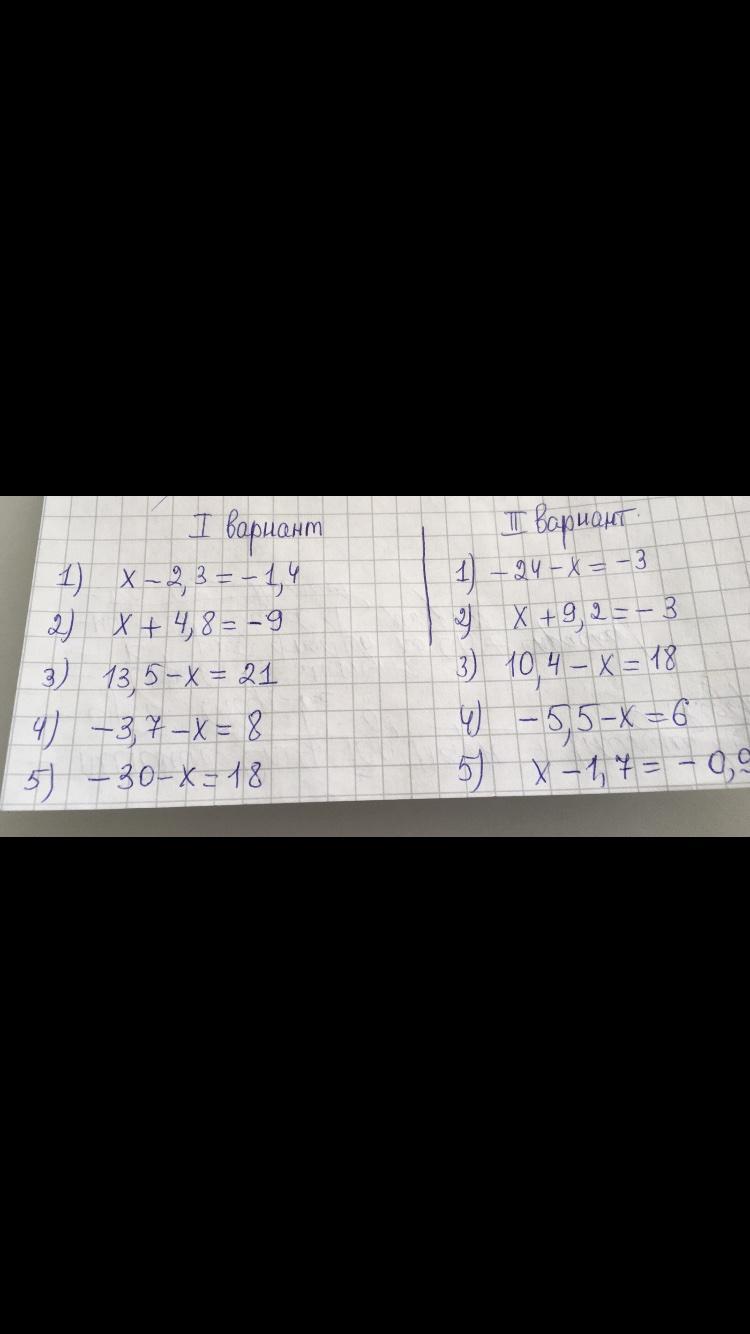 I вариант
1) x - 2,3 = -1,4
2) x + 4,8 = -9
3) 13,5 - x = 21
4) -3,7 - x = 8
5) -30 - x = 18
II вариант.
1) -24 - x = -3
2) x + 9,2 = -3
3) 10,4 - x = 18
4) -5,5 - x = 6
5) x - 1,7 = -0,9